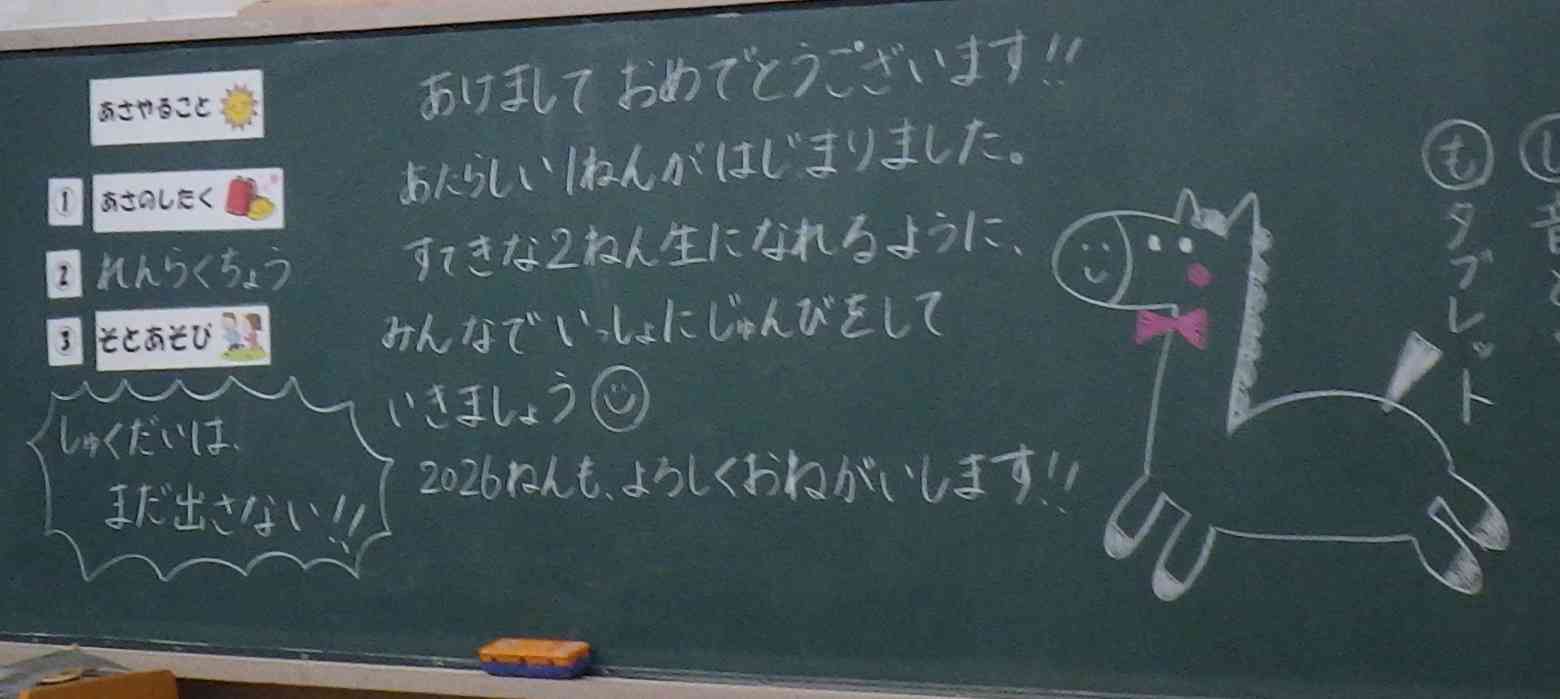 あさやること
① あさのしたく
② れんらくちょう
③ そとあそび
しゅくだいは、
まだ出さない!!
あけまして おめでとうございます!!
あたらしい1ねんがはじまりました。
すてきな2ねん生になれるように、
みんなで いっしょにじゅんびをして
いきましょう
2026ねんも、よろしくおねがいします!!
し 音
も タブレット